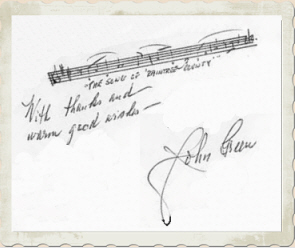 "THE SONG OF 'RAINTREE COUNTY'"
With thanks and
warm good wishes—
John Green